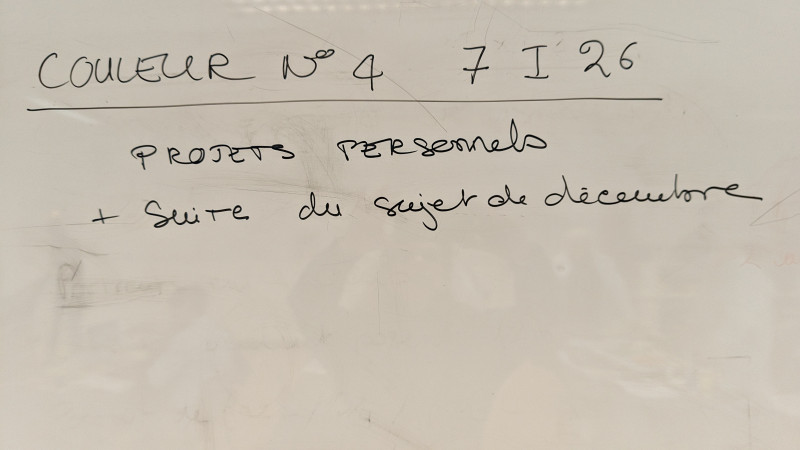 COULEUR N° 4 7 I 26
PROJETS PERSonnels
+ Suite du sujet de décembre